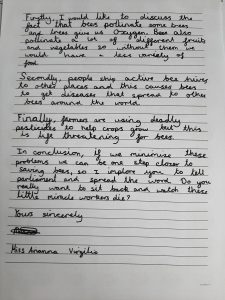 Firstly, I would like to discuss the
fact that bees pollinate some trees
and trees give us Oxygen. Bees also
pollinate a lot of different fruits
and vegetables so without them we
would have a less variety of
food.
Secondly, people ship active bee hives
to other places and this causes bees
to get diseases that spread to other
bees around the world.
Finally, farmers are using deadly
pesticides to help crops grow but this
is life threatening for bees.
In conclusion, if we minimise these
problems we can be one step closer to
saving bees, so I implore you to tell
parliament and spread the word. Do you
really want to sit back and watch these
little miracle workers die?
Yours sincerely
Miss Arianna Virgilio